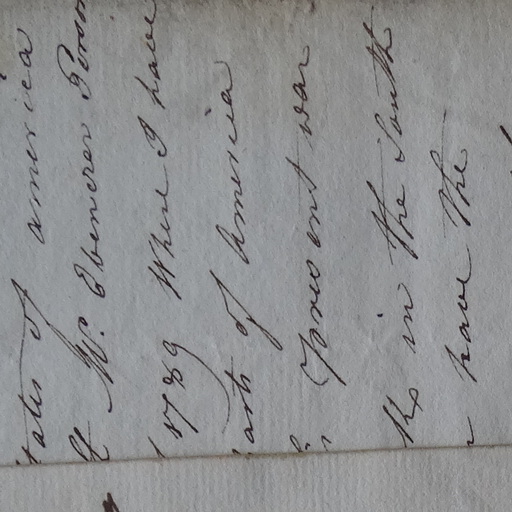 tates of america
of Mr. Ebenezer
1789 Where I have
arts of America
present war
ths in the South
have the